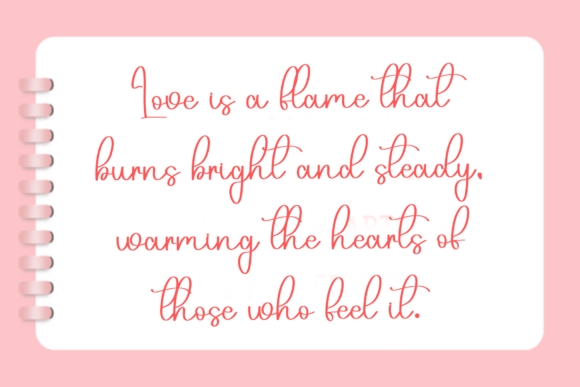 Love is a flame that
burns bright and steady,
warming the hearts of
those who feel it.